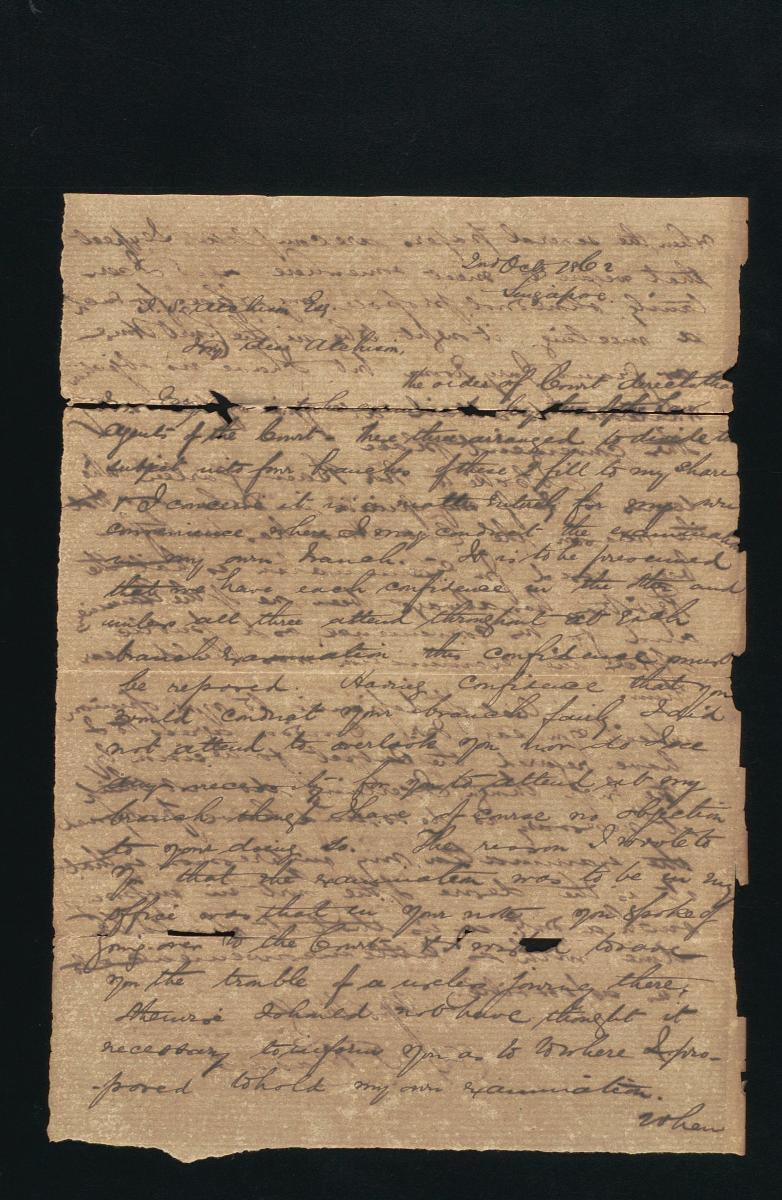 2nd Octr 1862
Singapore
J. S. Atchison Esq.
My dear Atchison,
The order of Court directs the
to be examined by
agents of the Court. These three arranged to divide the
subject into four branches of these 1 fell to my share
& I conceive it is a matter entirely for my own
convenience where I may conduct the examination
in my own branch. It is to be presumed
that we have each confidence in the other and
unless all three attend throughout at each
branch examination this confidence must
be reposed. Having confidence that you
would conduct your branch fairly I did
not attend to overlook you nor do I see
any necessity for you to attend at my
branch though I have of course no objection
to your doing so. The reason I wrote to
you that the examination was to be in my
office was that in your note you spoke of
going over to the Court & I wished to save
you the trouble of a useless journey there,
otherwise I should not have thought it
necessary to inform you as to where I pro-
-posed to hold my own examination.
When